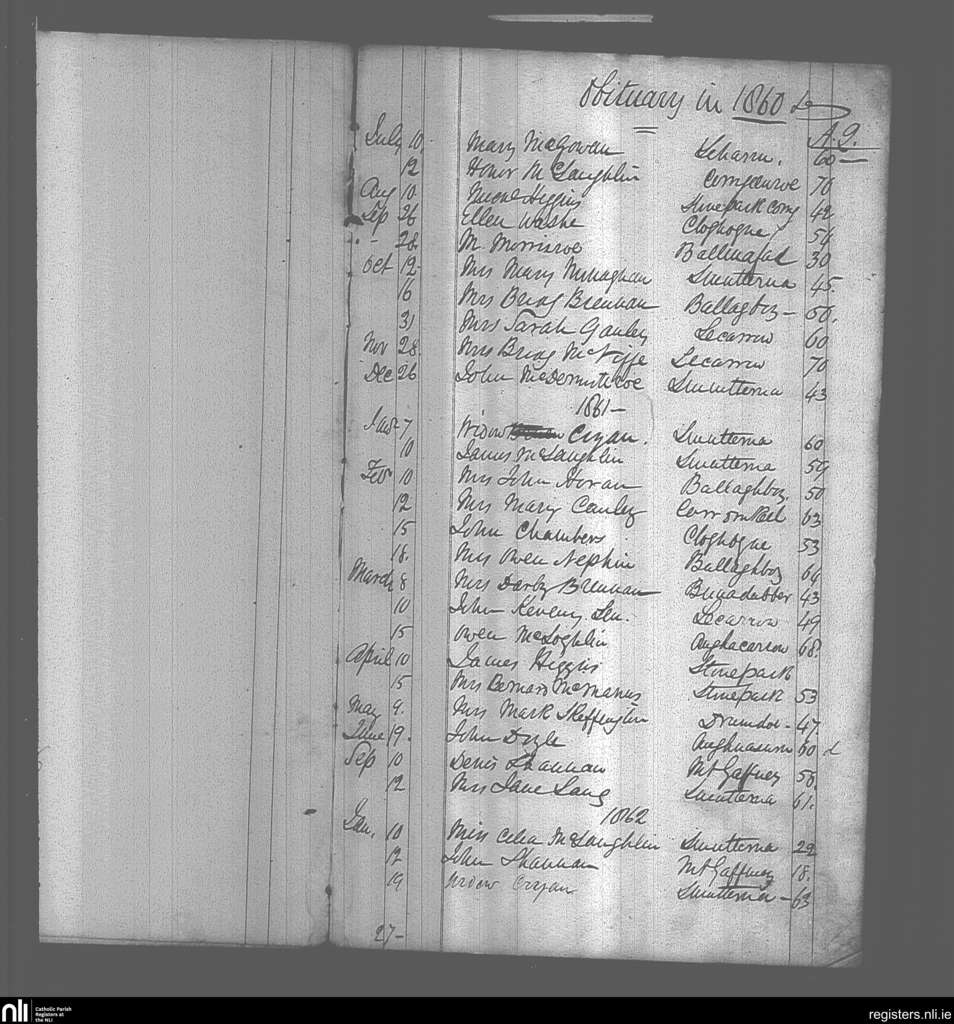 Obituary in 1860
A.G.
July 10 Mary McGowan 60
12 Honor McLaughlin 70
Aug 10 Higgins Stonepark Corry 42
Sep 26 Ellen Cloghogue 54
" - 28 M Morrisroe 30
Oct 12 Mrs Mary Monaghan Smutterna 45
16 Mrs Bridg Brennan Ballaghboy - 50
31 Mrs Sarah Ganley Lecarrow 60
Nov 28 Mrs Bridg McNiffe Lecarrow 70
Dec 26 John McDermottroe Smutterna 43
1861 -
Jan 7 Widow Cryan. Smutterna 60
10 James McLaughlin Smutterna 59
Feb 10 Mrs John Horan Ballaghboy. 50
12 Mrs Mary Cauley 63
15 John Chambers Cloghogue 53
18. Mrs Owen Nephin Ballaghboy 64
March 8 Mrs Darby Brennan Bunadubber 43
10 John Keveny Sen. Lecarrow 49
15 Owen McLoghlin Aughacarrow 68.
April 10 James Higgins Stonepark
15 Mrs Bernard McManus Stonepark 53
May 9. Mrs Mark Skeffington Drumdoe - 47.
June 19. John Doyle 60
Sep 10 Denis Shannan Mt Gaffney 58.
12 Mrs Jane Lang Smutterna 61.
1862
Jan. 10 Miss Celia McLaughlin Smutterna 22
12 John Shannan Mt Gaffney 18.
19 Widow Cryan Smutterna - 63
27 -
nli Catholic Parish
Registers at
the NLI
registers.nli.ie